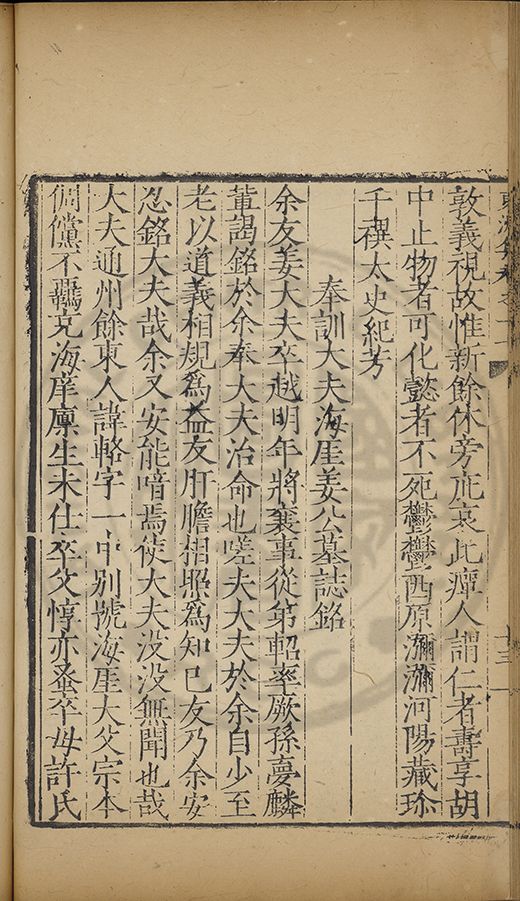 敦義視故惟新餘休旁庇哀此瘅人謂仁者壽享胡
中止物者可化懿者不死鬱鬱西原瀰瀰河陽藏珎
千禩太史紀芳
奉訓大夫海厓姜公墓誌銘
余友姜大夫卒越明年將襄事從弟軺率厥孫夢麟
輩謁銘於余奉大夫治命也嗟夫大夫於余自少至
老以道義相規爲益友肝膽相照爲知己友乃余安
忍銘大夫哉余又安能喑焉使大夫没没無聞也哉
大夫通州餘東人諱輅字一中别號海厓大父宗本
倜儻不羈克海庠廪生未仕卒父惇亦蚤卒母許氏